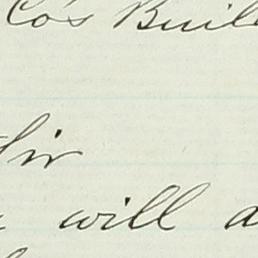 Co's Buil
Sir
will a